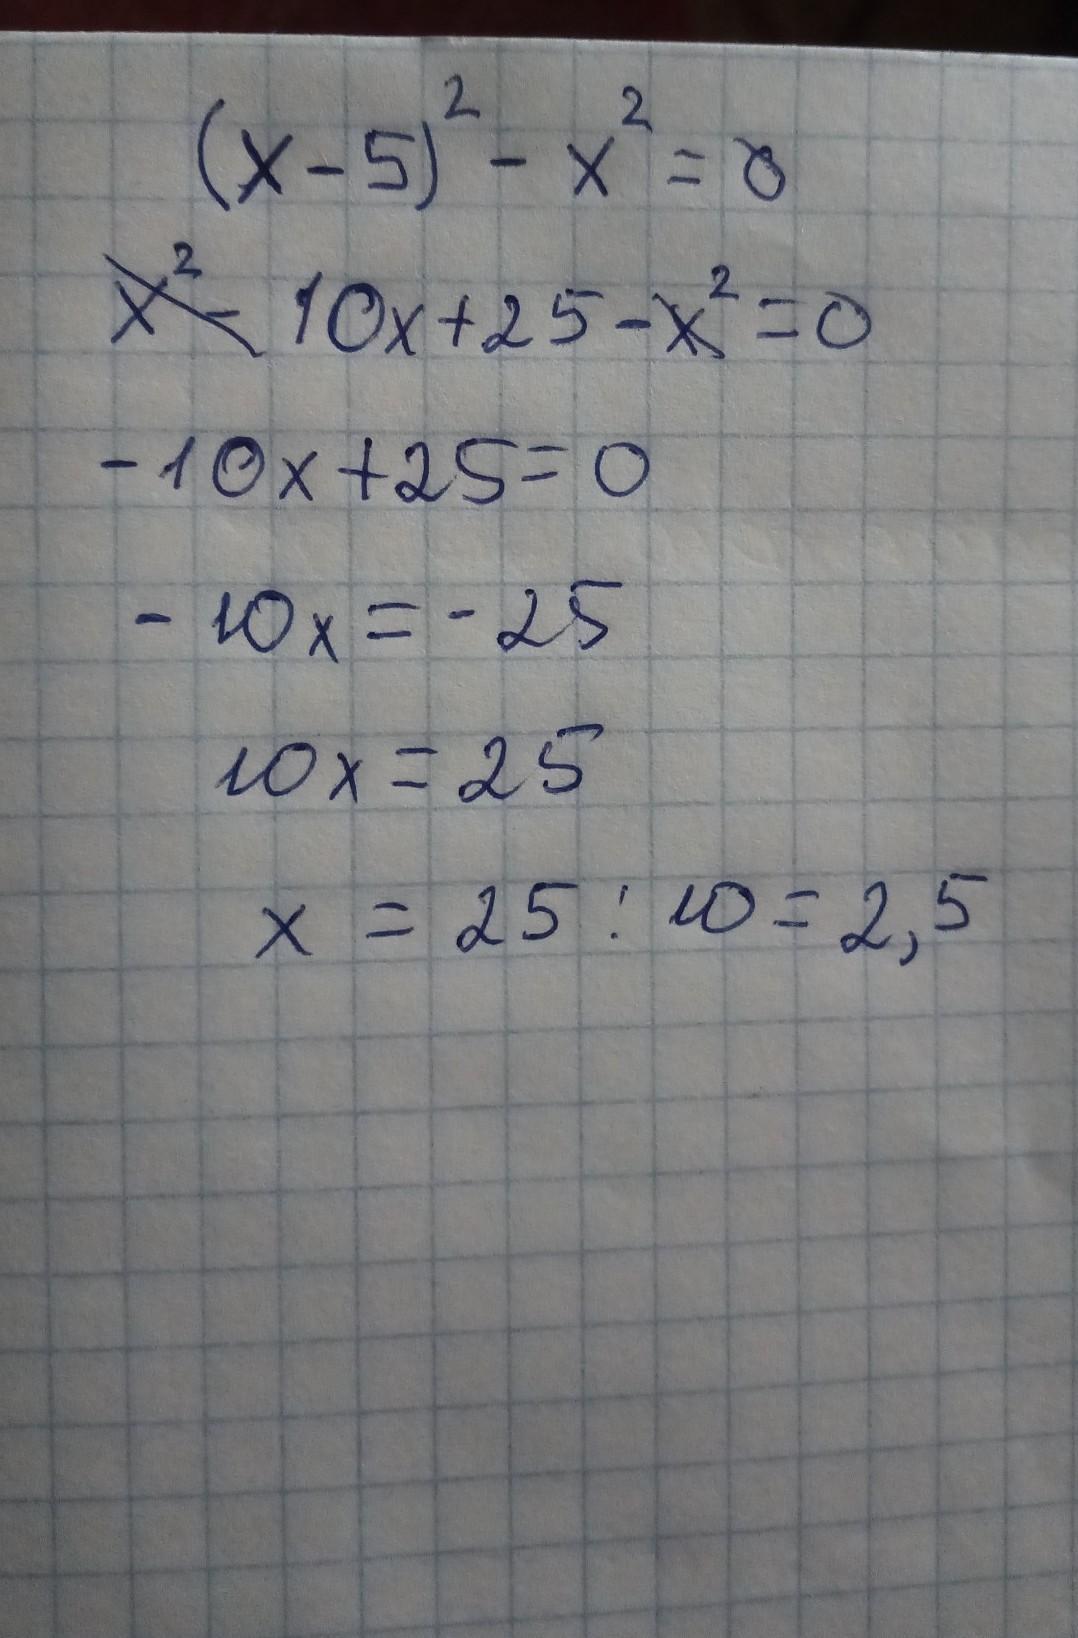 (x-5)² - x² = 0
x² - 10x+25-x²=0
-10x+25=0
- 10x = - 25
10x = 25
x = 25 : 10 = 2,5